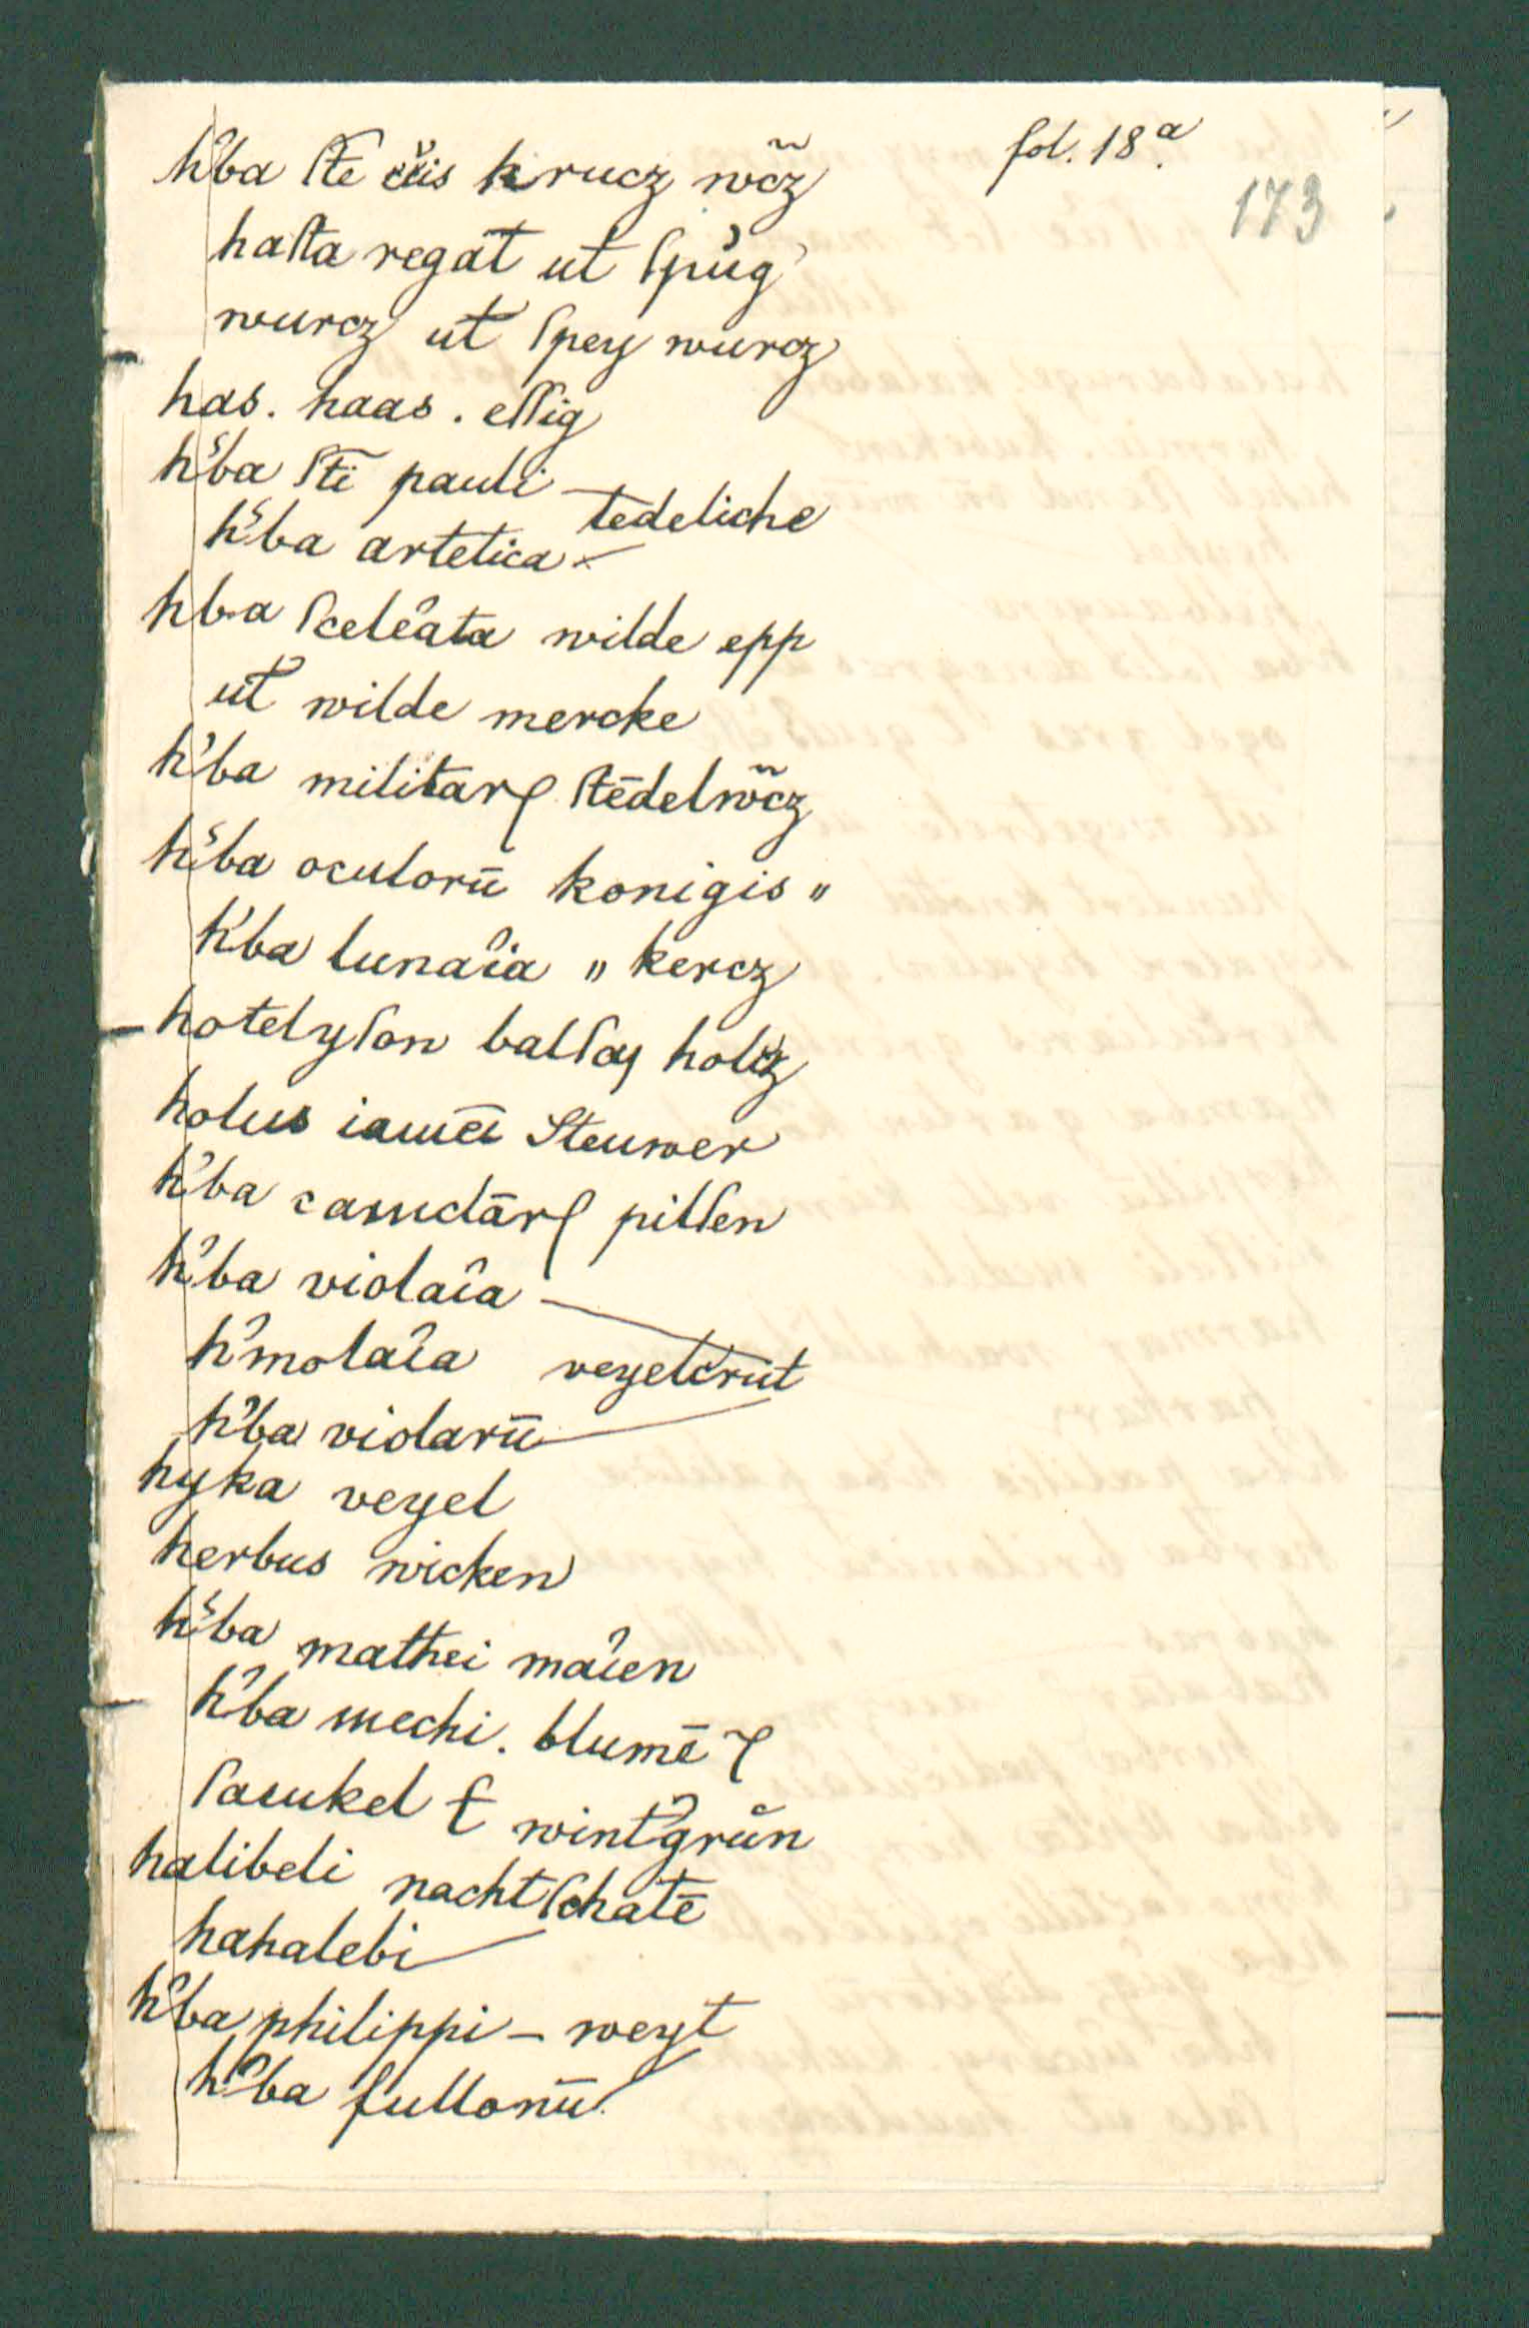 fol. 18a.
173
h'ba ſte c̃is krucz wõcz
haſta regat̄ ut̄ ſpùg'
wurcz ut̄ ſpey wurcz
has. haas. eſſig
h'ba ſti pauli
tedeliche
h'ba artetica
hba ſceleâta wilde epp
ut̄ wilde mercke
h'ba militarꝭ ſtēdelwõcz
h'ba oculorū konigis "
h'ba lunaîa " kercz
hotelyſon balſaɱ holcz
holus Steuwer
h'ba pillſen
h'ba violaîa
h'molaîa veyelcrūt
h'ba violarū
hyka veyel
herbus wicken
h'ba mathei maîen
h'ba mechi. blumē
ſaukel wint'grün
halibeli nachtſchatē
hahalebi
h'ba philippi – weyt
h'ba fullonū